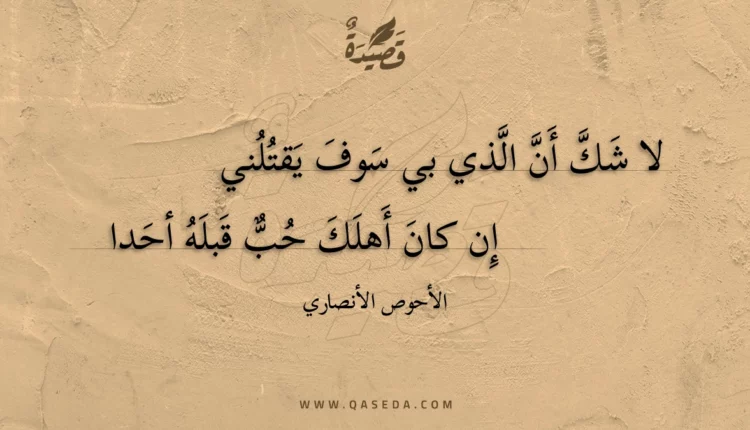 قَصِيدَةٌ
لا شَكَّ أَنَّ الَّذي بي سَوفَ يَقتُلُني
إِن كانَ أَهلَكَ حُبٌّ قَبلَهُ أحَدا
الأحوص الأنصاري
WWW.QASEDA.COM